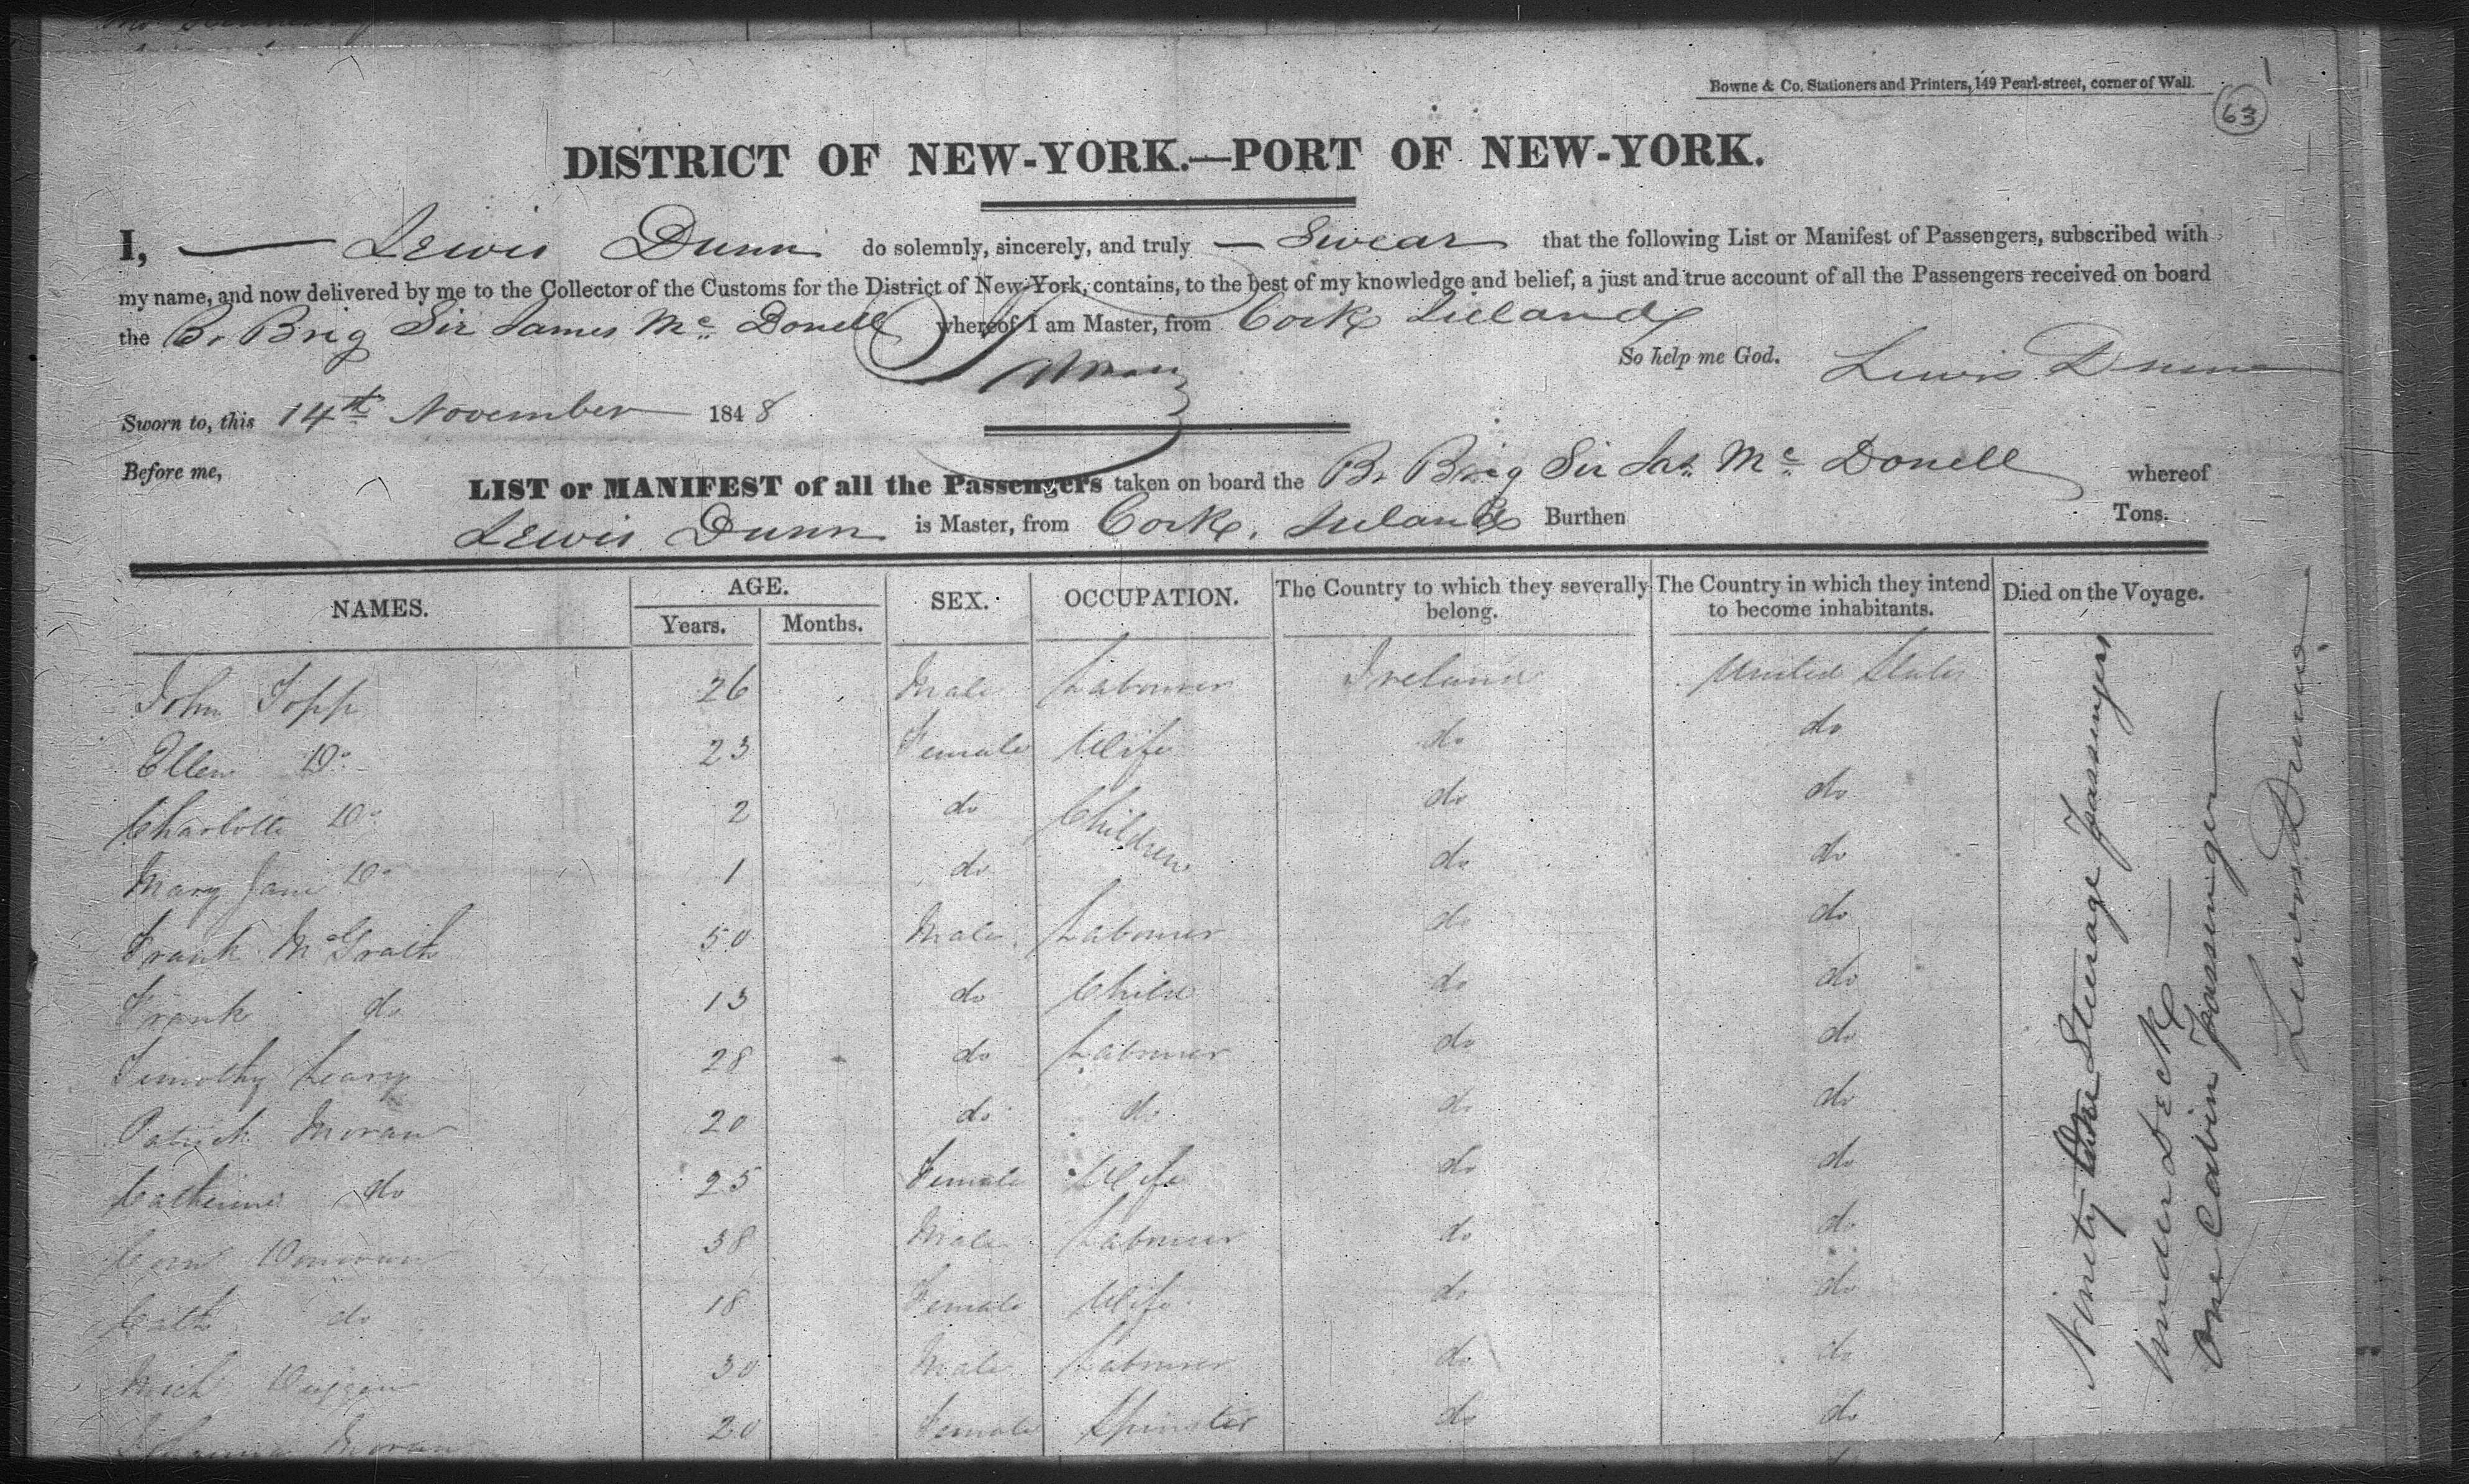 Bowne & Co. Stationers and Printers, 149 Pearl-street, corner of Wall.
63
DISTRICT OF NEW-YORK.—PORT OF NEW-YORK.
I, Lewis Dunn do solemnly, sincerely, and truly Swear that the following List or Manifest of Passengers, subscribed with
my name, and now delivered by me to the Collector of the Customs for the District of New-York, contains, to the best of my knowledge and belief, a just and true account of all the Passengers received on board
the Br Brig Sir James Mc Donell whereof I am Master, from Cork Ireland
So help me God. Lewis Dunn
Sworn to, this 14th November 1848
Before me,
LIST or MANIFEST of all the Passengers taken on board the Br Brig Sir Jas Mc Donell whereof
Lewis Dunn is Master, from Cork, Ireland Burthen Tons.
NAMES. AGE. SEX. OCCUPATION. The Country to which they severally belong. The Country in which they intend to become inhabitants. Died on the Voyage.
Years. Months.
John Topp 26 Male Labourer Ireland United States
Ellen Do 23 Female Wife do do
Charlotte Do 2 do Children do do
Mary Jane Do 1 do do do
Frank McGrath 50 Male Labourer do do
Frank do 13 do Child do do
Timothy Leary 28 do Labourer do do
Patrick Moran 20 do do do do
Catherine do 25 Female Wife do do
Corn Donovan 38 Male Labourer do do
Cath do 18 Female Wife do do
Mich Duggan 30 Male Labourer do do
Johanna Moran 20 Female Spinster do do
Ninety Steerage passengers
under Deck
One Cabin passenger
Lewis Dunn